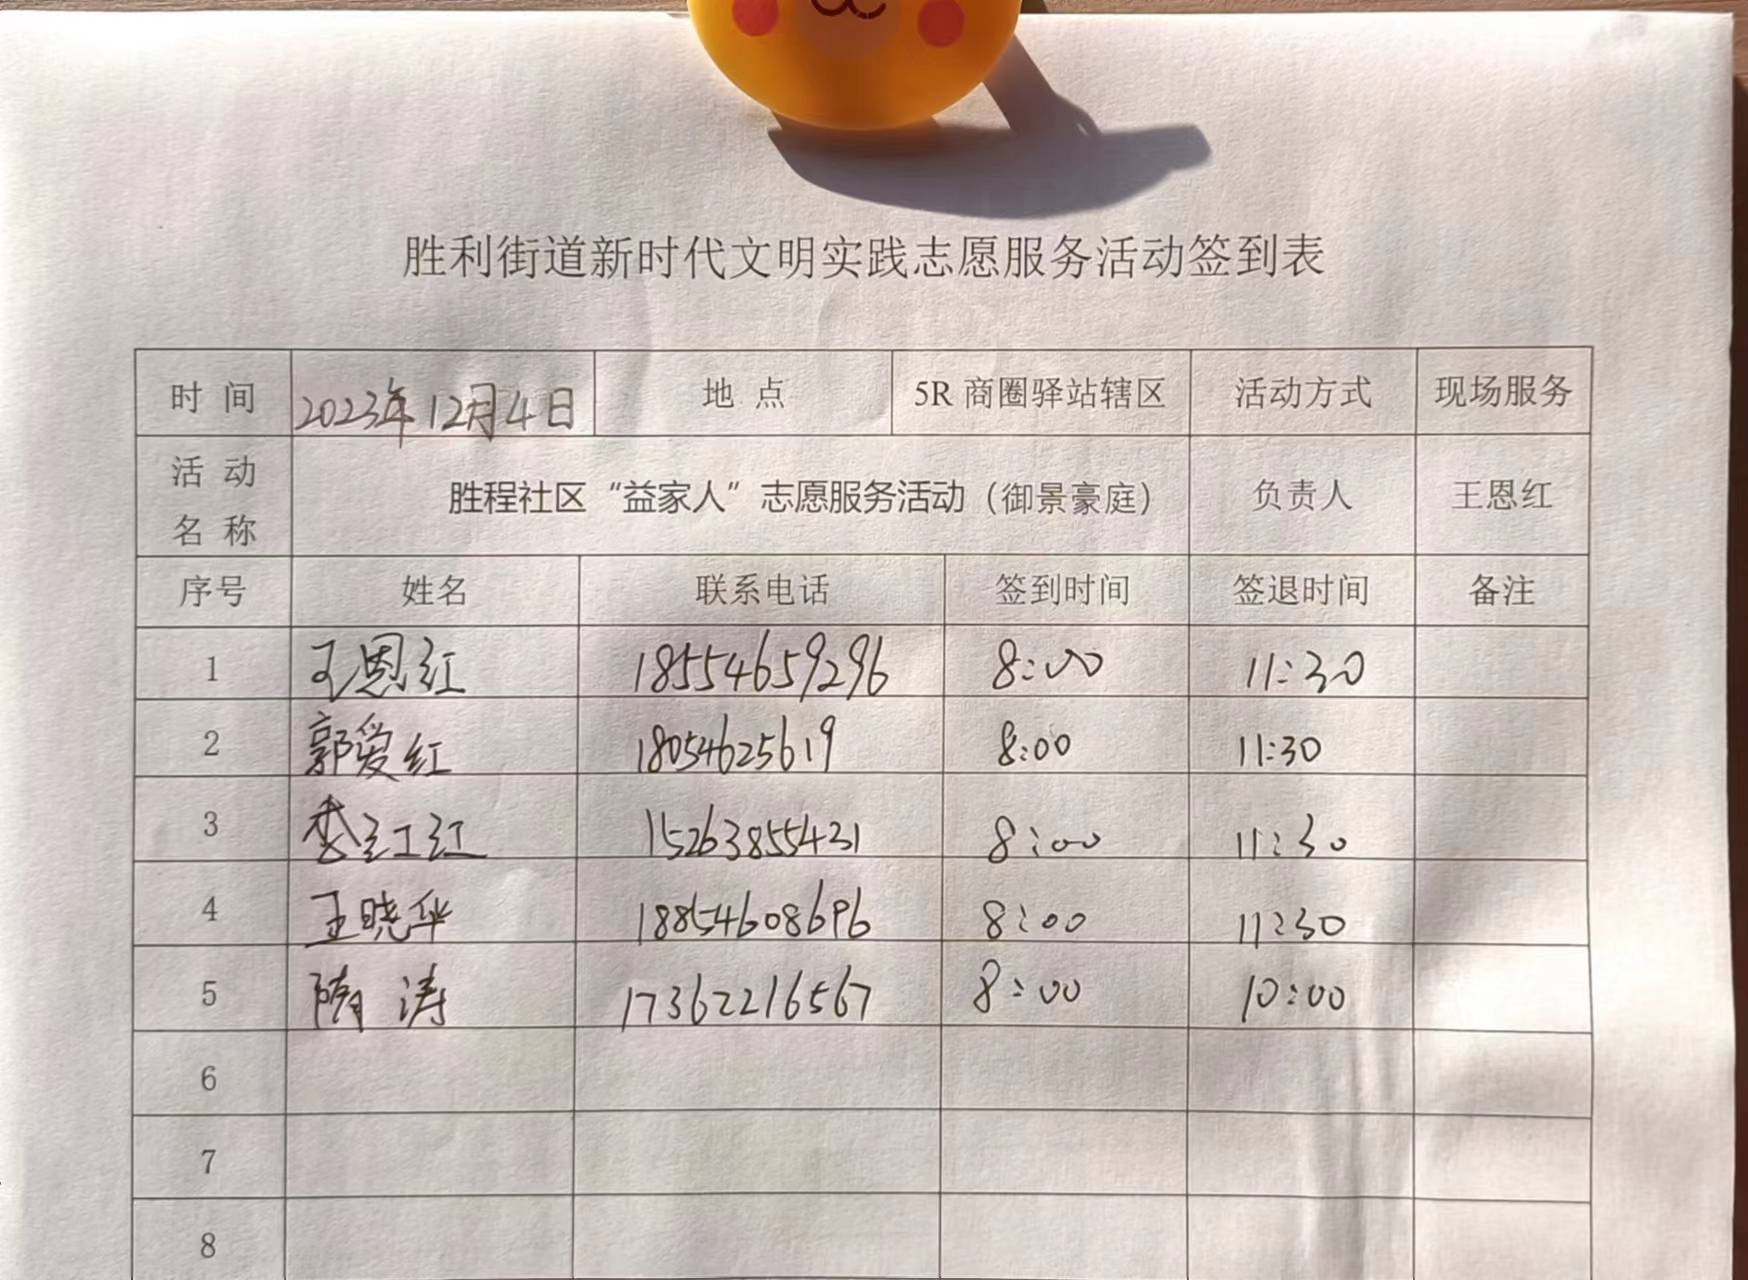 胜利街道新时代文明实践志愿服务活动签到表
时 间 2023年12月4日 地 点 5R 商圈驿站辖区 活动方式 现场服务
活 动 名 称 胜程社区“益家人”志愿服务活动（御景豪庭） 负责人 王恩红
序号 姓名 联系电话 签到时间 签退时间 备注
1 王恩红 18554659296 8:00 11:30
2 郭爱红 18054625619 8:00 11:30
3 李红红 15263855421 8:00 11:30
4 王晓华 18854608696 8:00 11:30
5 隋涛 17362216567 8:00 10:00
6
7
8